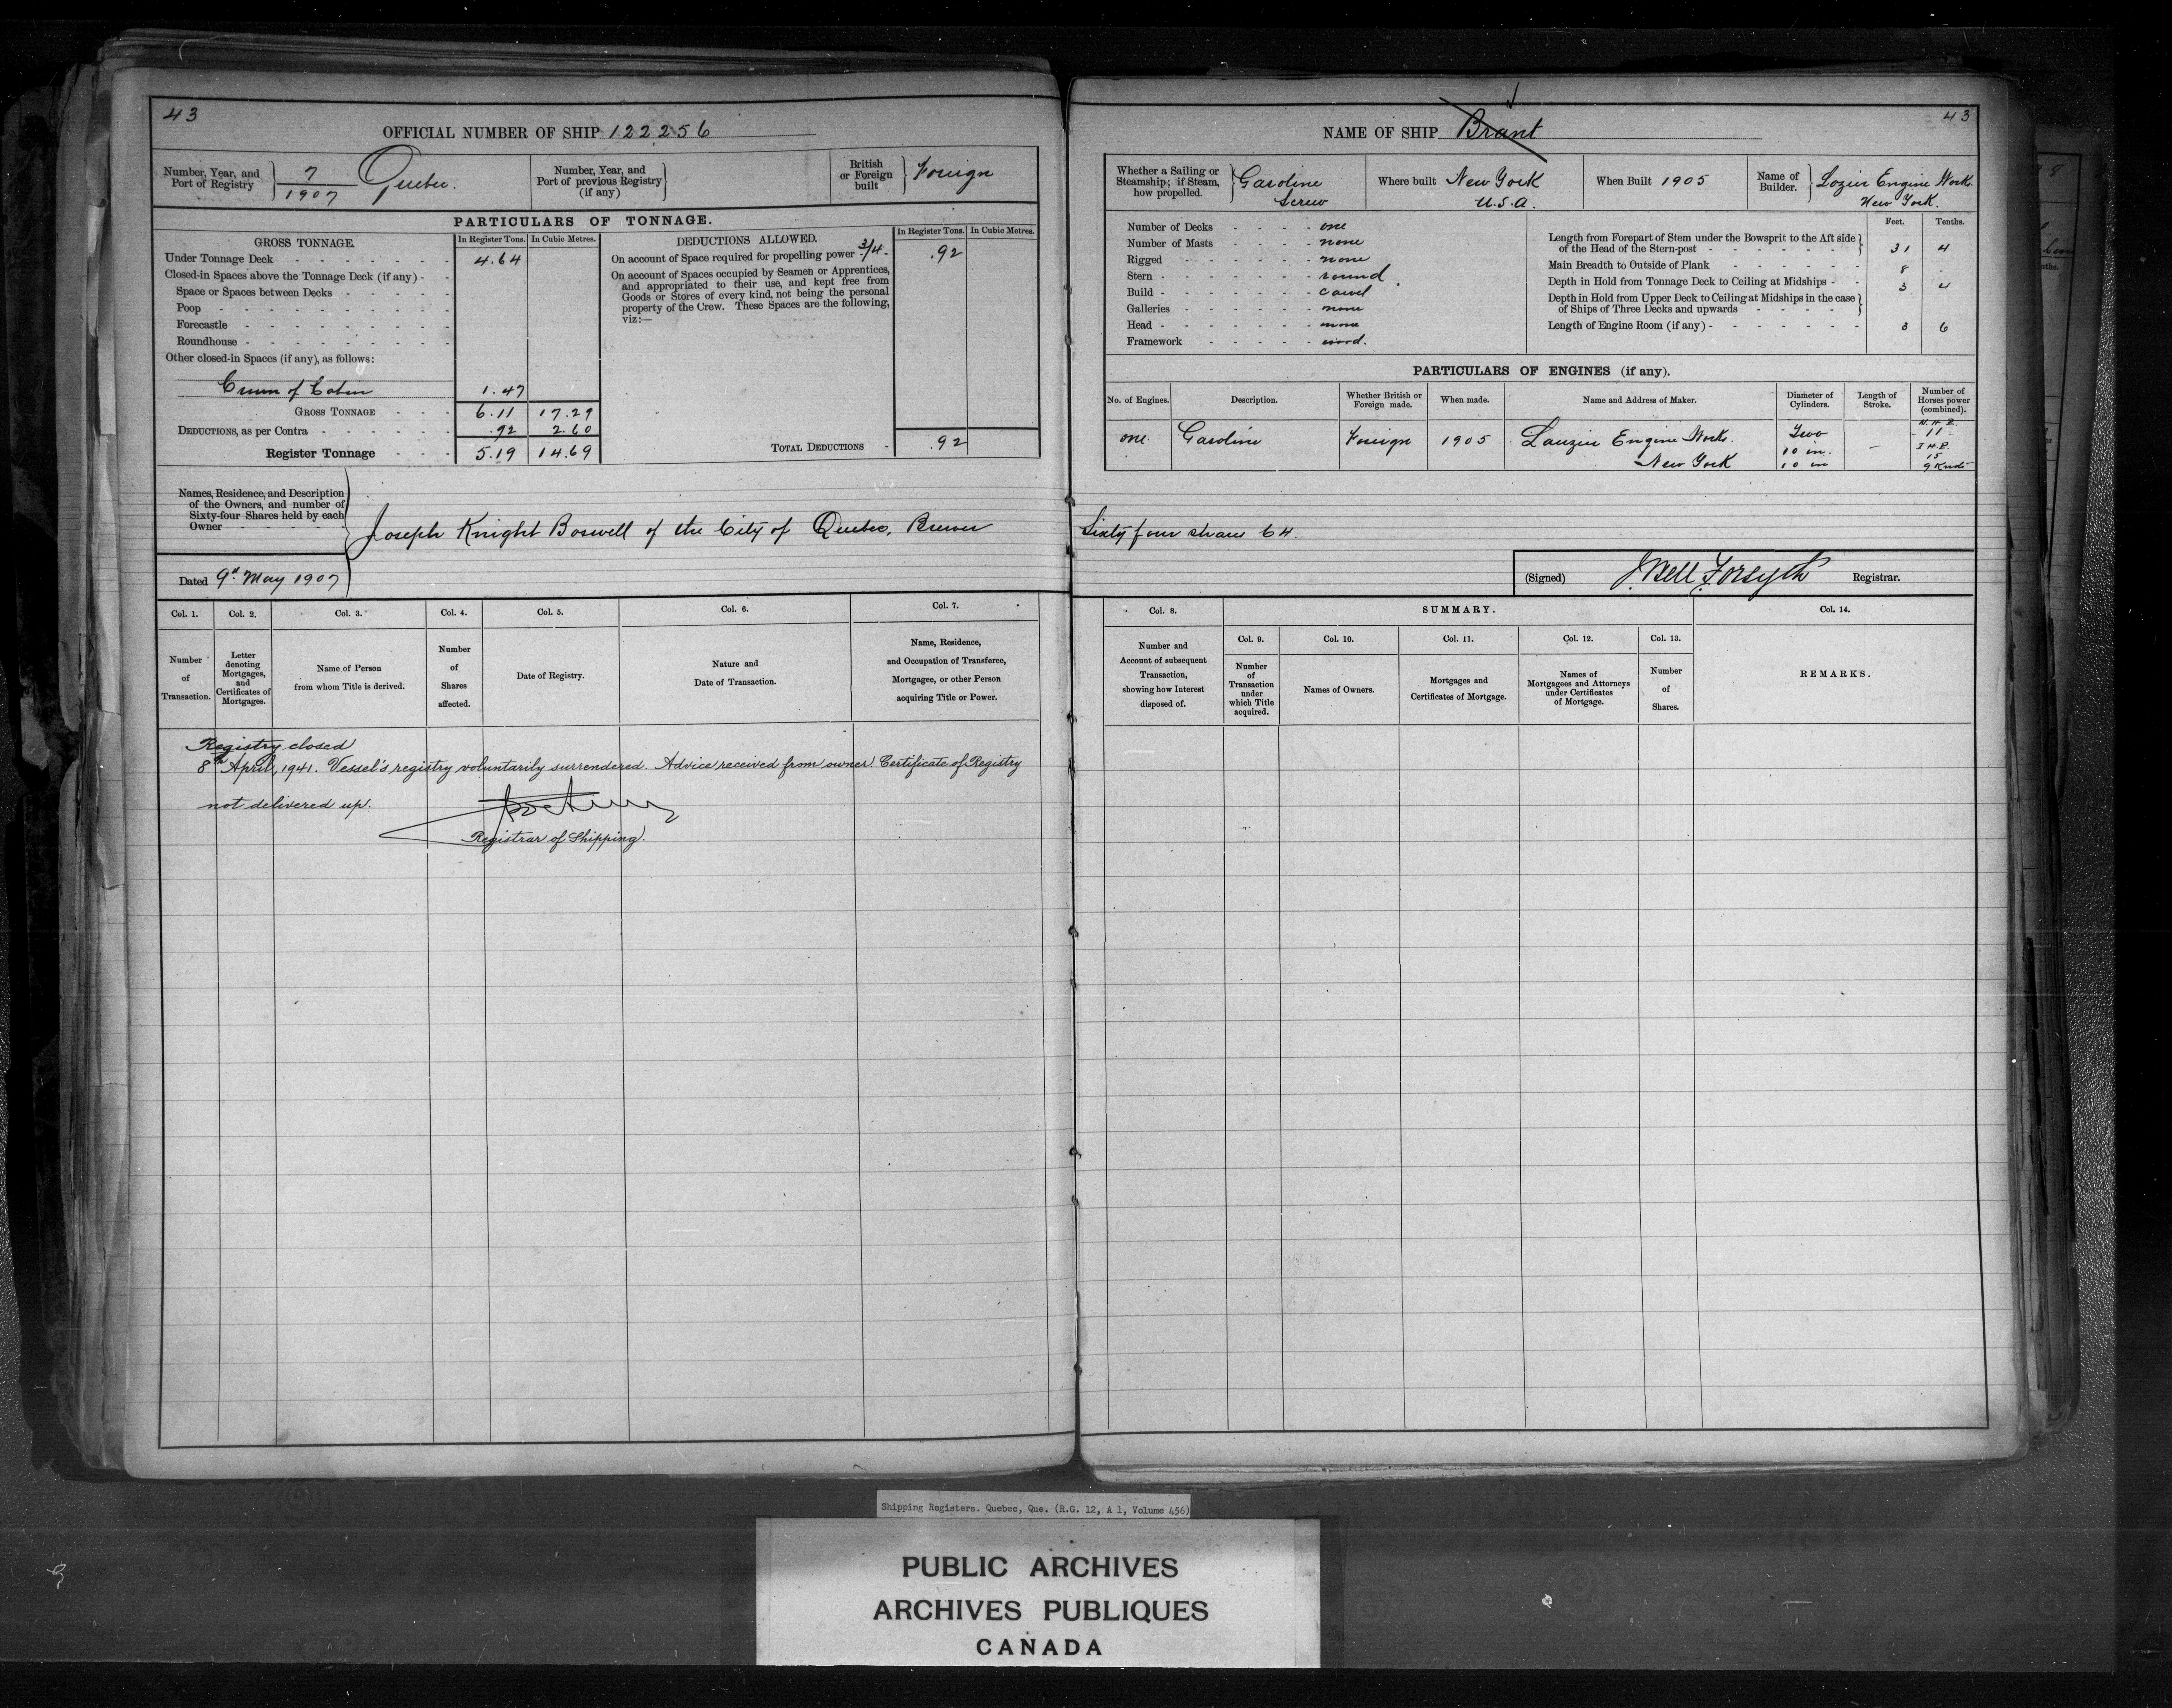 43
OFFICIAL NUMBER OF SHIP 122256
Number, Year, and Port of Registry } 7 / 1907 Quebec.
Number, Year, and Port of previous Registry (if any) }
British or Foreign built } Foreign
PARTICULARS OF TONNAGE.
GROSS TONNAGE. In Register Tons. In Cubic Metres.
Under Tonnage Deck - - - - - - - 4.64
Closed-in Spaces above the Tonnage Deck (if any) - -
Space or Spaces between Decks - - - - -
Poop - - - - - - - - - -
Forecastle - - - - - - - - -
Roundhouse - - - - - - - - -
Other closed-in Spaces (if any), as follows:
of Cabin 1.47
GROSS TONNAGE - - - 6.11 17.29
DEDUCTIONS, as per Contra - - - - - - .92 2.60
Register Tonnage - - - 5.19 14.69
DEDUCTIONS ALLOWED. In Register Tons. In Cubic Metres.
On account of Space required for propelling power 3/4 - .92
On account of Spaces occupied by Seamen or Apprentices,
and appropriated to their use, and kept free from
Goods or Stores of every kind, not being the personal
property of the Crew. These Spaces are the following,
viz:—
TOTAL DEDUCTIONS - .92
Names, Residence, and Description
of the Owners, and number of
Sixty-four Shares held by each
Owner - - - - -
Joseph Knight Boswell of the City of Quebec, Brewer
Dated 9th May 1907
Col. 1. Col. 2. Col. 3. Col. 4. Col. 5. Col. 6. Col. 7.
Number of Transaction.
Letter denoting Mortgages, and Certificates of Mortgages.
Name of Person from whom Title is derived.
Number of Shares affected.
Date of Registry.
Nature and Date of Transaction.
Name, Residence, and Occupation of Transferee, Mortgagee, or other Person acquiring Title or Power.
Registry closed
8th April, 1941. Vessel's registry voluntarily surrendered. Advice received from owner. Certificate of Registry
not delivered up.
Registrar of Shipping.
43
NAME OF SHIP Brant
Whether a Sailing or Steamship; if Steam, how propelled. } Gasoline Screw
Where built New York U.S.A.
When Built 1905
Name of Builder. } Lozier Engine Work. New York.
Number of Decks - - - - one
Number of Masts - - - - none
Rigged - - - - - none
Stern - - - - - - round
Build - - - - - - carvel
Galleries - - - - - none
Head - - - - - - none
Framework - - - - - wood.
Feet. Tenths.
Length from Forepart of Stem under the Bowsprit to the Aft side of the Head of the Stern-post - - - - - - 31 4
Main Breadth to Outside of Plank - - - - - - 8 -
Depth in Hold from Tonnage Deck to Ceiling at Midships - - 3 4
Depth in Hold from Upper Deck to Ceiling at Midships in the case of Ships of Three Decks and upwards - - - -
Length of Engine Room (if any) - - - - - - 3 6
PARTICULARS OF ENGINES (if any).
No. of Engines. Description. Whether British or Foreign made. When made. Name and Address of Maker. Diameter of Cylinders. Length of Stroke. Number of Horses power (combined).
one. Gasoline Foreign 1905 Lauzier Engine Work. New York Two 10 in. 10 in — N.H.P. 11 I.H.P. 15 9 Knots
Sixty four shares 64.
(Signed) J. Bell Forsyth Registrar.
Col. 8. SUMMARY. Col. 14.
Col. 9. Col. 10. Col. 11. Col. 12. Col. 13.
Number and Account of subsequent Transaction, showing how Interest disposed of.
Number of Transaction under which Title acquired.
Names of Owners.
Mortgages and Certificates of Mortgage.
Names of Mortgagees and Attorneys under Certificates of Mortgage.
Number of Shares.
REMARKS.
Shipping Registers. Quebec, Que. (R.G. 12, A 1, Volume 456)
PUBLIC ARCHIVES
ARCHIVES PUBLIQUES
CANADA